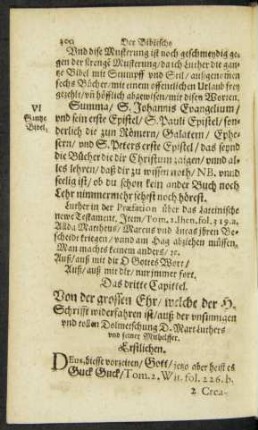 300 Der Biblische
Und dise Musterung ist noch geschmeydig ge-
gen der strenge Musterung / da ich Luther die gan-
tze Bibel mit Strumpff und Stil / außgenomen
sechs Bücher / mit einem offentlichen Urlaub frey
gezehlt / uñ höfflich abgewisen / mit disen Worten.
VI
Gantze
Bibel.
Summa / S. Johannis Evangelium /
und sein erste Epistel / S. Pauli Epistel / son-
derlich die zun Römern / Galatern / Ephe-
sern / und S. Peters erste Epistel / das seynd
die Bücher die dir Christum zaigen / vnnd al-
les lehren / daß dir zu wissen noth / NB. vnnd
seelig ist / ob du schon kein ander Buch noch
Lehr nimmermehr sehest noch hörest.
Luther in der Præfation über das Lateinische
newe Testament, Item / Tom. 1. Ihen. fol. 319. a.
Allda Mattheus / Marcus vnd Lucas ihren Be-
scheidt kriegen / vnnd am Hag abziehen müssen.
Man machts keinem anders / ꝛc.
Auß / auß mit dir O Gottes Wort /
Auß / auß mit dir / nur immer fort.
Das dritte Capittel.
Von der grossen Ehr / welche der H.
Schrifft widerfahren ist / auß der vnsinnigen
vnd tollen Dolmetschung D. Mart. Luthers
vnd seiner Mithelffer.
Erstlichen.
DEus, hiesse vorzeiten / Gott / jetzo aber heist es
Guck Guck / Tom. 2. Wit. fol. 226. b.
2 Crea-